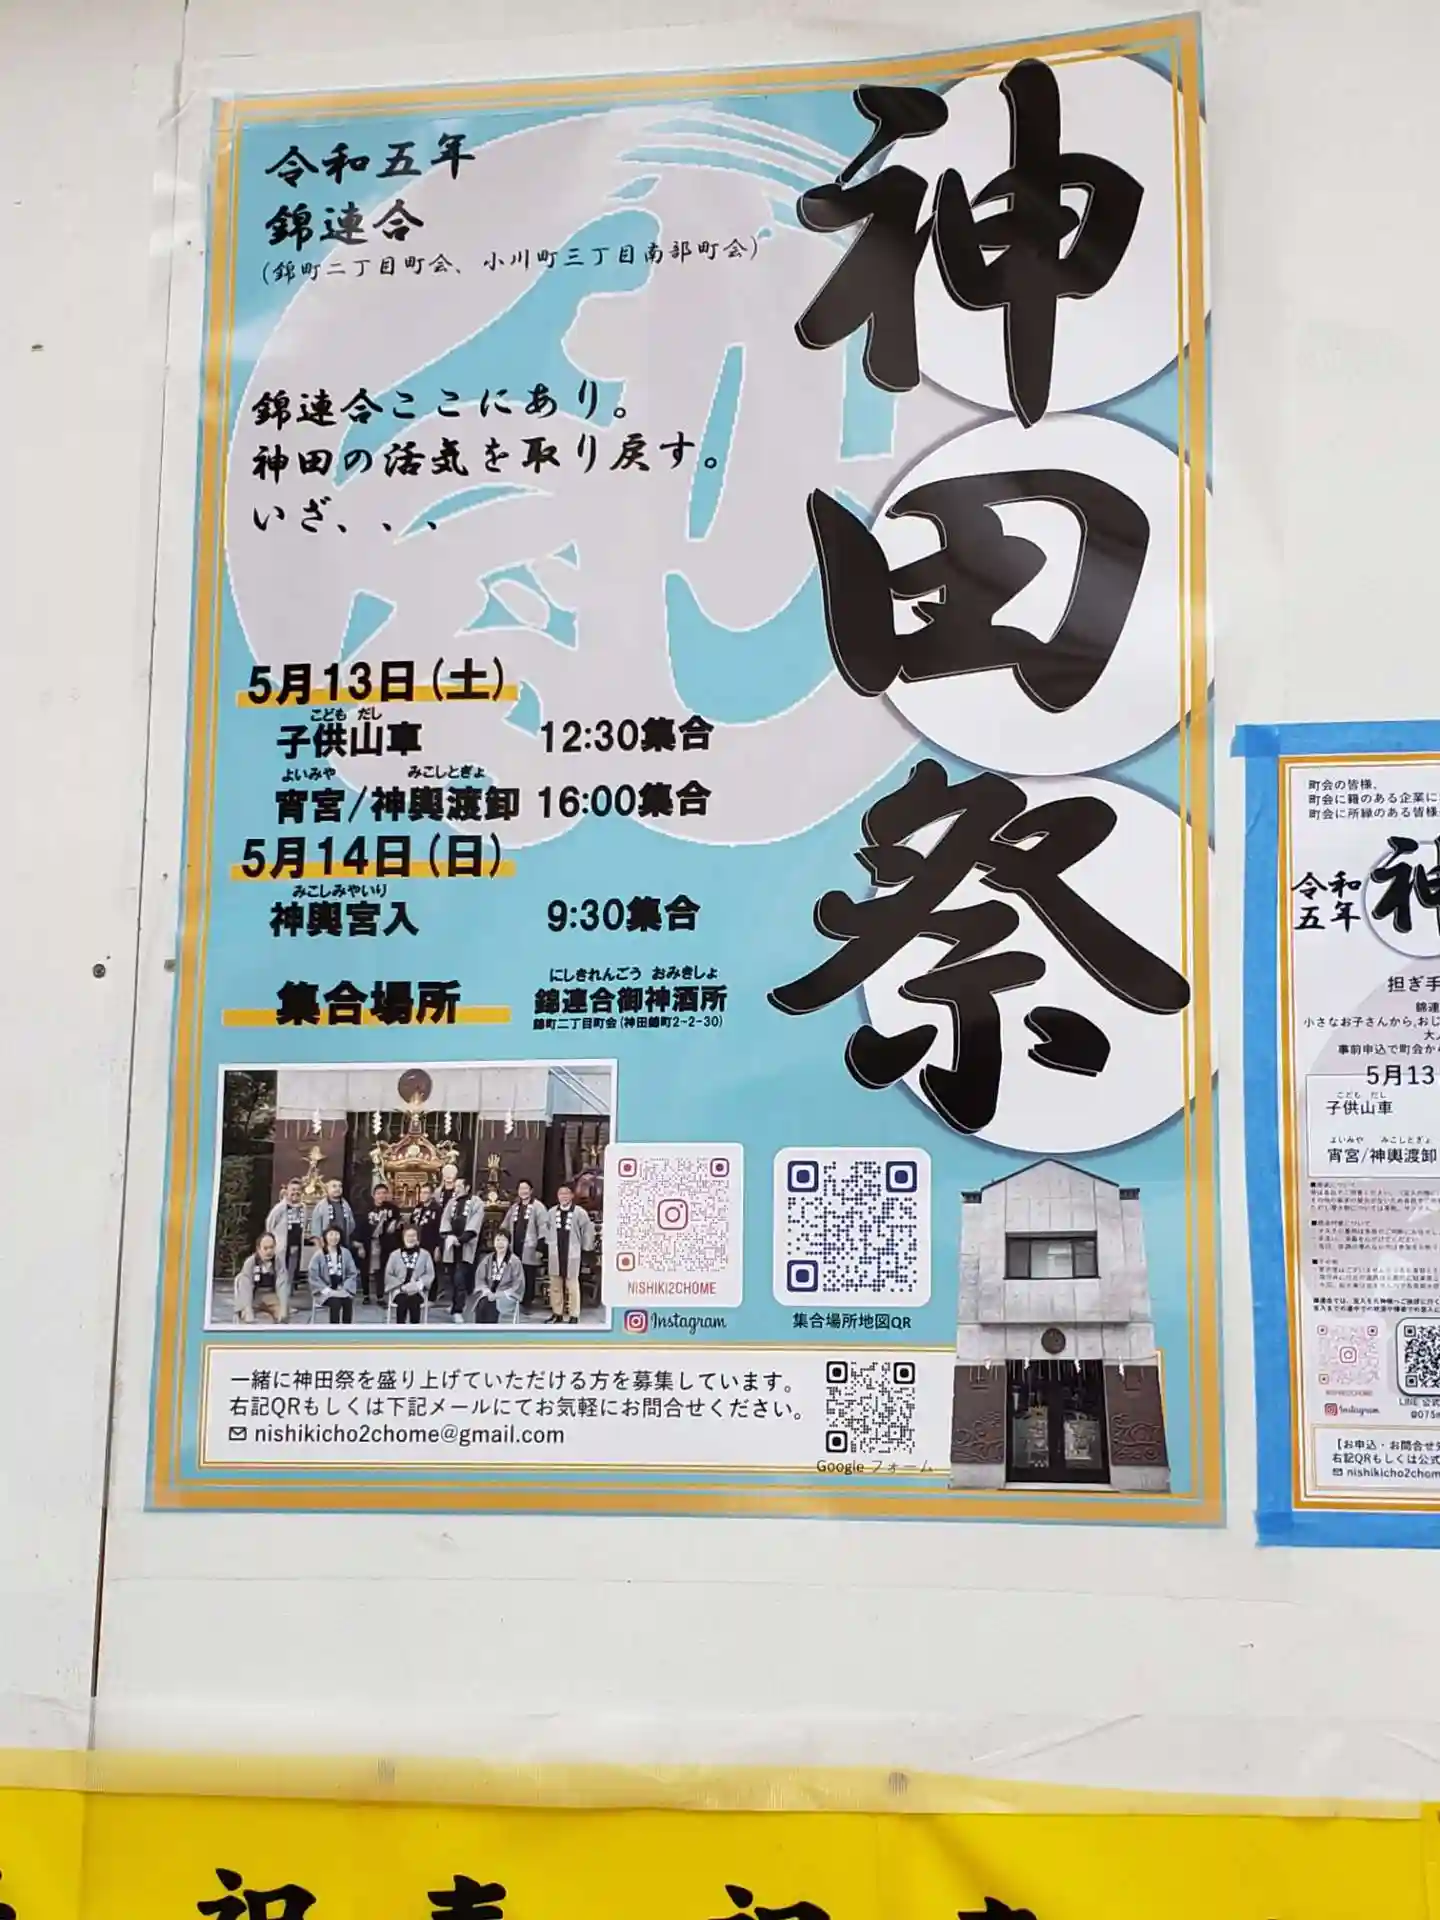 神田祭
令和五年
錦連合
(錦町二丁目町会、小川町三丁目南部町会)
錦連合ここにあり。
神田の活気を取り戻す。
いざ、、、
5月13日(土)
こども だし
子供山車 12:30集合
よいみや みこしとぎょ
宵宮/神輿渡卸 16:00集合
5月14日(日)
みこしみやいり
神輿宮入 9:30集合
にしきれんごう おみきしょ
集合場所 錦連合御神酒所
錦町二丁目町会(神田錦町2-2-30)
NISHIKI2CHOME
Instagram
集合場所地図QR
一緒に神田祭を盛り上げていただける方を募集しています。
右記QRもしくは下記メールにてお気軽にお問合せください。
nishikicho2chome@gmail.com
Google フォーム
町会の皆様、
町会に籍のある企業に
町会に所縁のある皆様
令和
五年
神
担ぎ手
錦連
小さなお子さんから,おじ
大人
事前申込で町会から
5月13
こども だし
子供山車
よいみや みこしとぎょ
宵宮/神輿渡卸
NISHIKI2CHOME
Instagram
LINE 公式
@075m
【お申込・お問合せ先
右記QRもしくは公式
nishikicho2chom
祝 祝